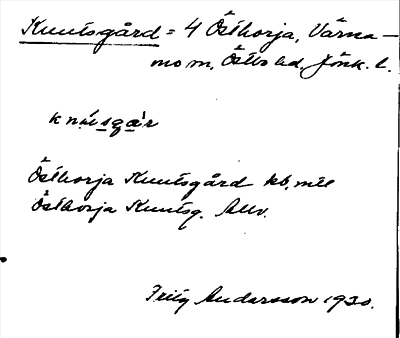 Knutsgård = 4 Östhorja, Värna-
mo sn, Östbo hd, Jönk. l.
Östhorja Knutsgård kb, mtl
Östhorja Knutsg.
Fritz Andersson 1930.